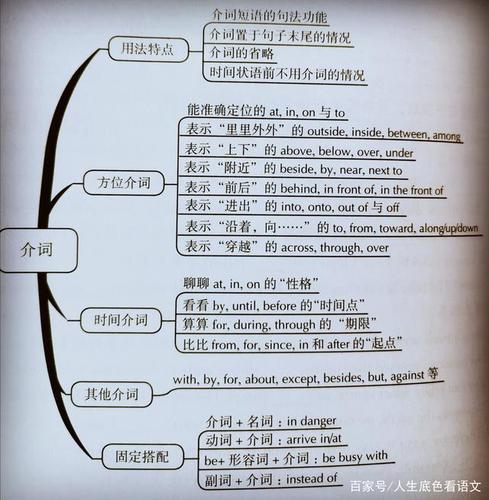 介词
用法特点
介词短语的句法功能
介词置于句子末尾的情况
介词的省略
时间状语前不用介词的情况
方位介词
能准确定位的 at, in, on 与 to
表示“里里外外”的 outside, inside, between, among
表示“上下”的 above, below, over, under
表示“附近”的 beside, by, near, next to
表示“前后”的 behind, in front of, in the front of
表示“进出”的 into, onto, out of 与 off
表示“沿着，向……”的 to, from, toward, along/up/down
表示“穿越”的 across, through, over
时间介词
聊聊 at, in, on 的“性格”
看看 by, until, before 的“时间点”
算算 for, during, through 的“期限”
比比 from, for, since, in 和 after 的“起点”
其他介词
with, by, for, about, except, besides, but, against 等
固定搭配
介词 + 名词：in danger
动词 + 介词：arrive in/at
be+ 形容词 + 介词：be busy with
副词 + 介词：instead of
百家号/人生底色看语文